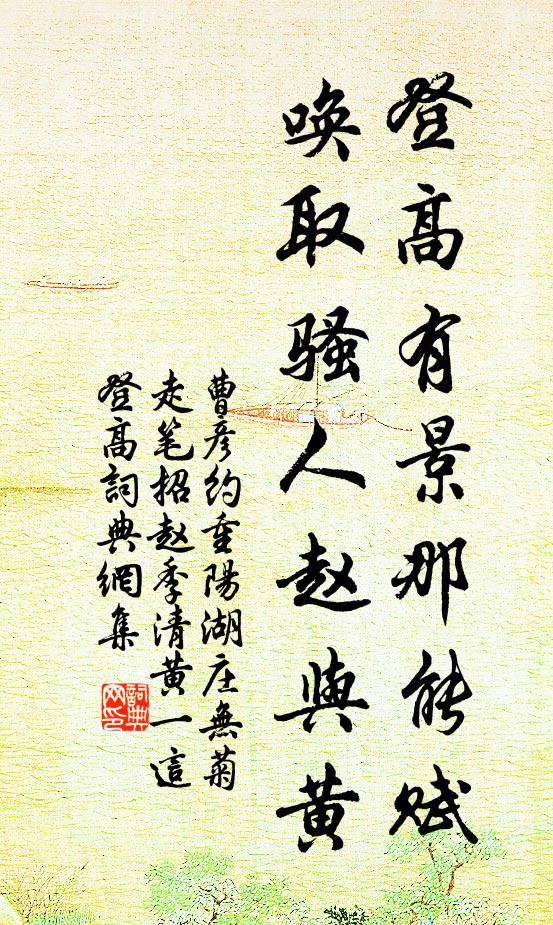 登高有景那能賦
喚取騷人赵與黄
曹彦約重陽湖庄無菊
走笔招赵季清黄一這
登高詞典網集
詞典
网印